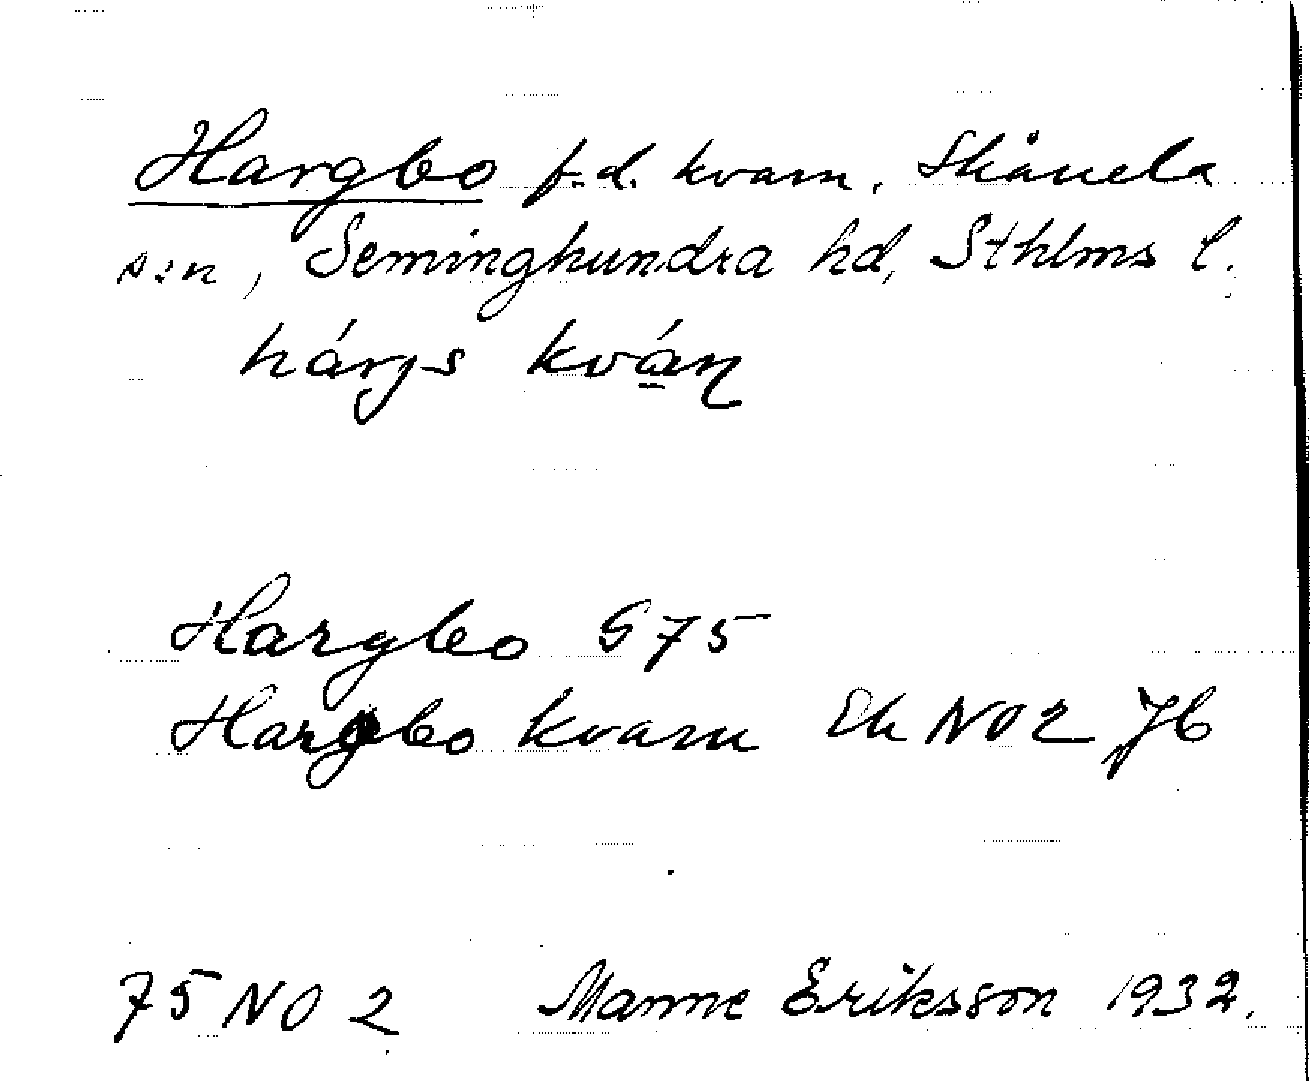 Hargbo f.d. kvarn, Skånela
s:n, Seminghundra hd, Sthlms l.
hárgs kvá̱ɳ
Hargbo G 75
Hargbo kvarn Ek NO2 Jb
75 NO 2 Manne Eriksson 1932.